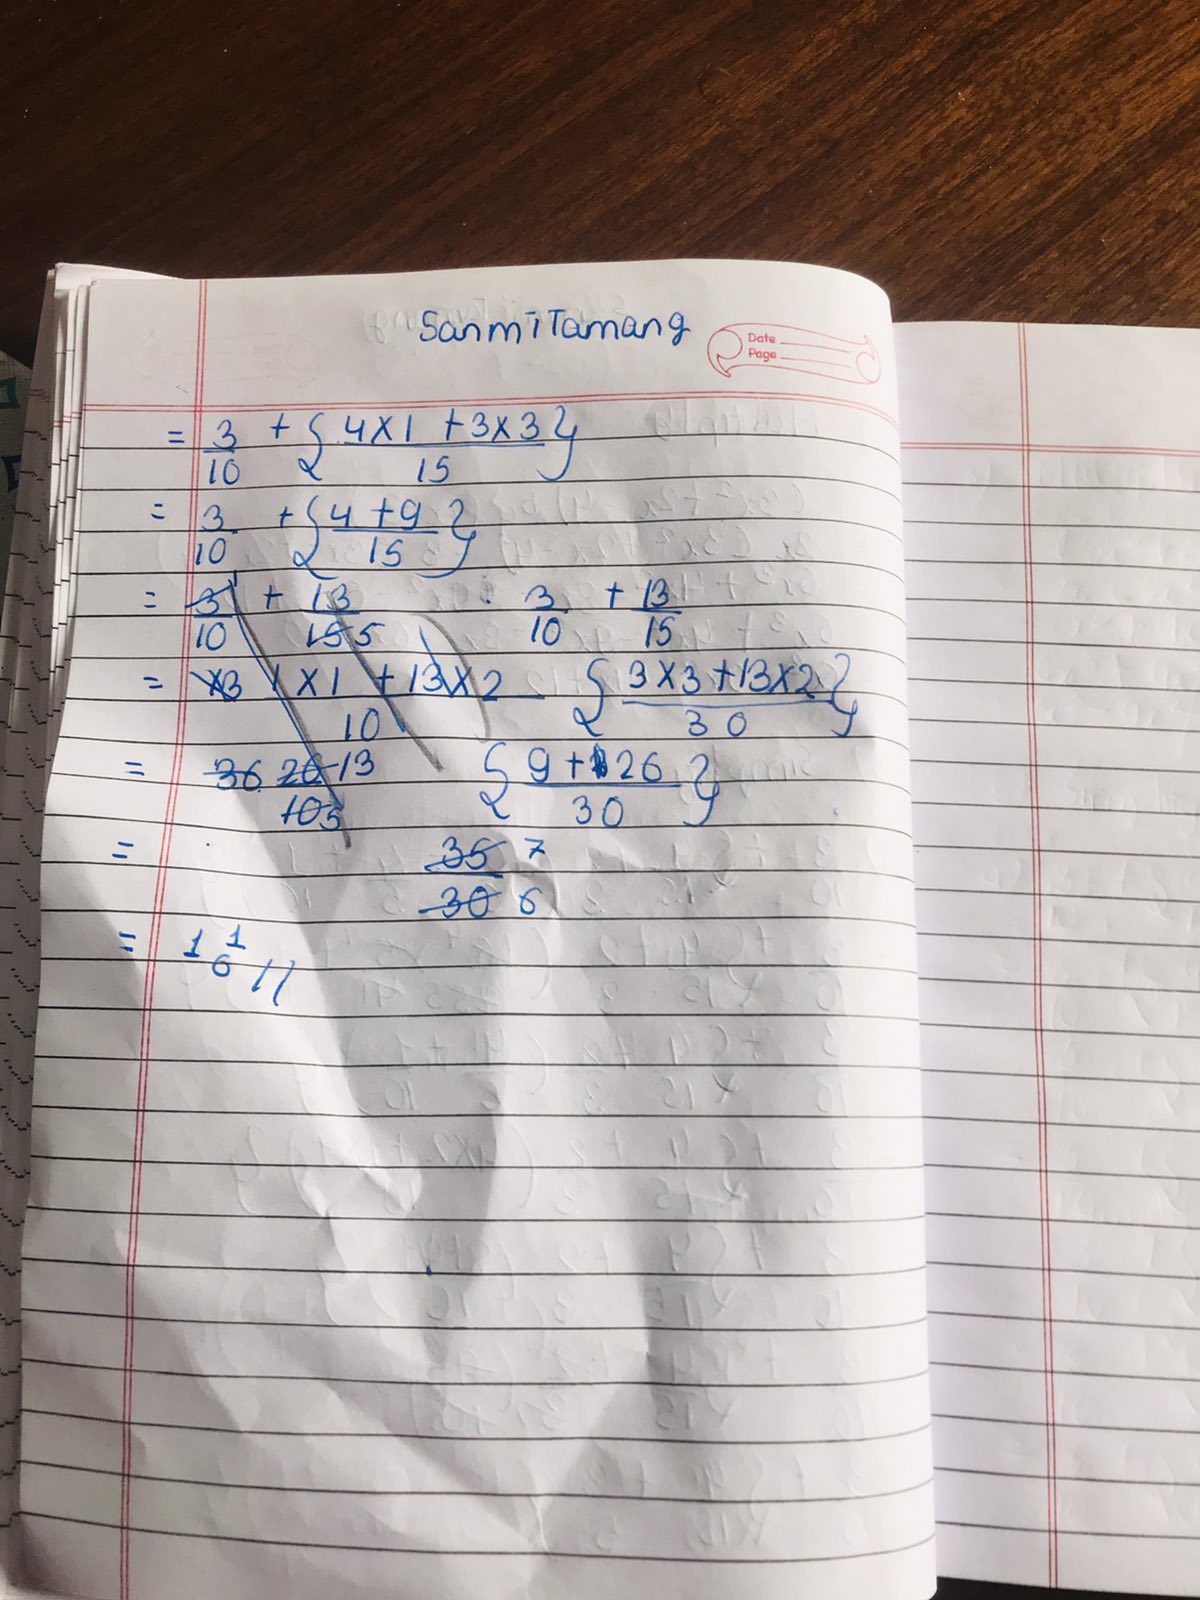 Sanmi Tamang
Date
Page
= 3/10 + { 4×1 + 3×3 / 15 }
= 3/10 + { 4 + 9 / 15 }
= 3/10 + 13/15 5 : 3/10 + 13/15
= ×3 1×1 + 13×2 / 10 { 3×3 + 13×2 / 30 }
= 36 26 13 / 10 5 { 9 + 26 / 30 }
= 35/30 7/6
= 1 1/6 //